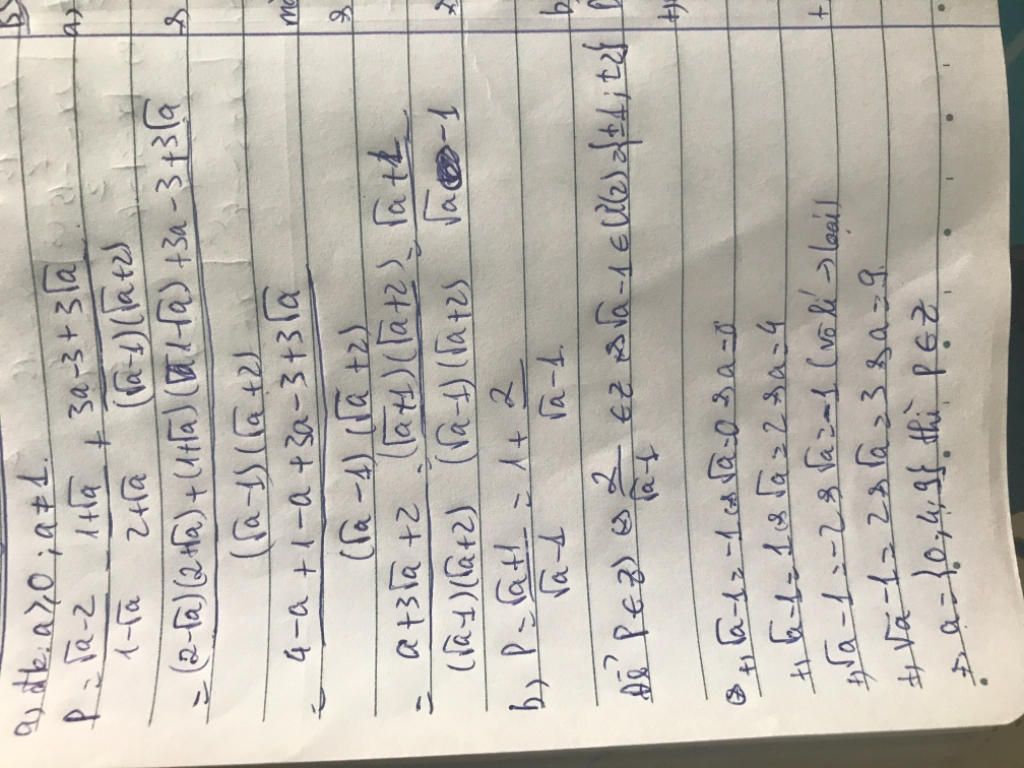 a) đk: a ≥ 0 ; a ≠ 1.
P = (√a - 2)/(1 - √a) - (1 + √a)/(2 + √a) + (3a - 3 + 3√a)/((√a - 1)(√a + 2))
= ((2 - √a)(2 + √a) + (1 + √a)(1 - √a) + 3a - 3 + 3√a)/((√a - 1)(√a + 2))
= (4 - a + 1 - a + 3a - 3 + 3√a)/((√a - 1)(√a + 2))
= (a + 3√a + 2)/((√a - 1)(√a + 2)) = ((√a + 1)(√a + 2))/((√a - 1)(√a + 2)) = (√a + 1)/(√a - 1)
b) P = (√a + 1)/(√a - 1) = 1 + 2/(√a - 1)
Để P ∈ Z ⇔ 2/(√a - 1) ∈ Z ⇔ √a - 1 ∈ Ư(2) = {±1; ±2}
⇔ +, √a - 1 = -1 ⇔ √a = 0 ⇔ a = 0
+, √a - 1 = 1 ⇔ √a = 2 ⇔ a = 4
+, √a - 1 = -2 ⇔ √a = -1 (vô lí → loại)
+, √a - 1 = 2 ⇔ √a = 3 ⇔ a = 9.
a = {0, 4, 9} thì P ∈ Z